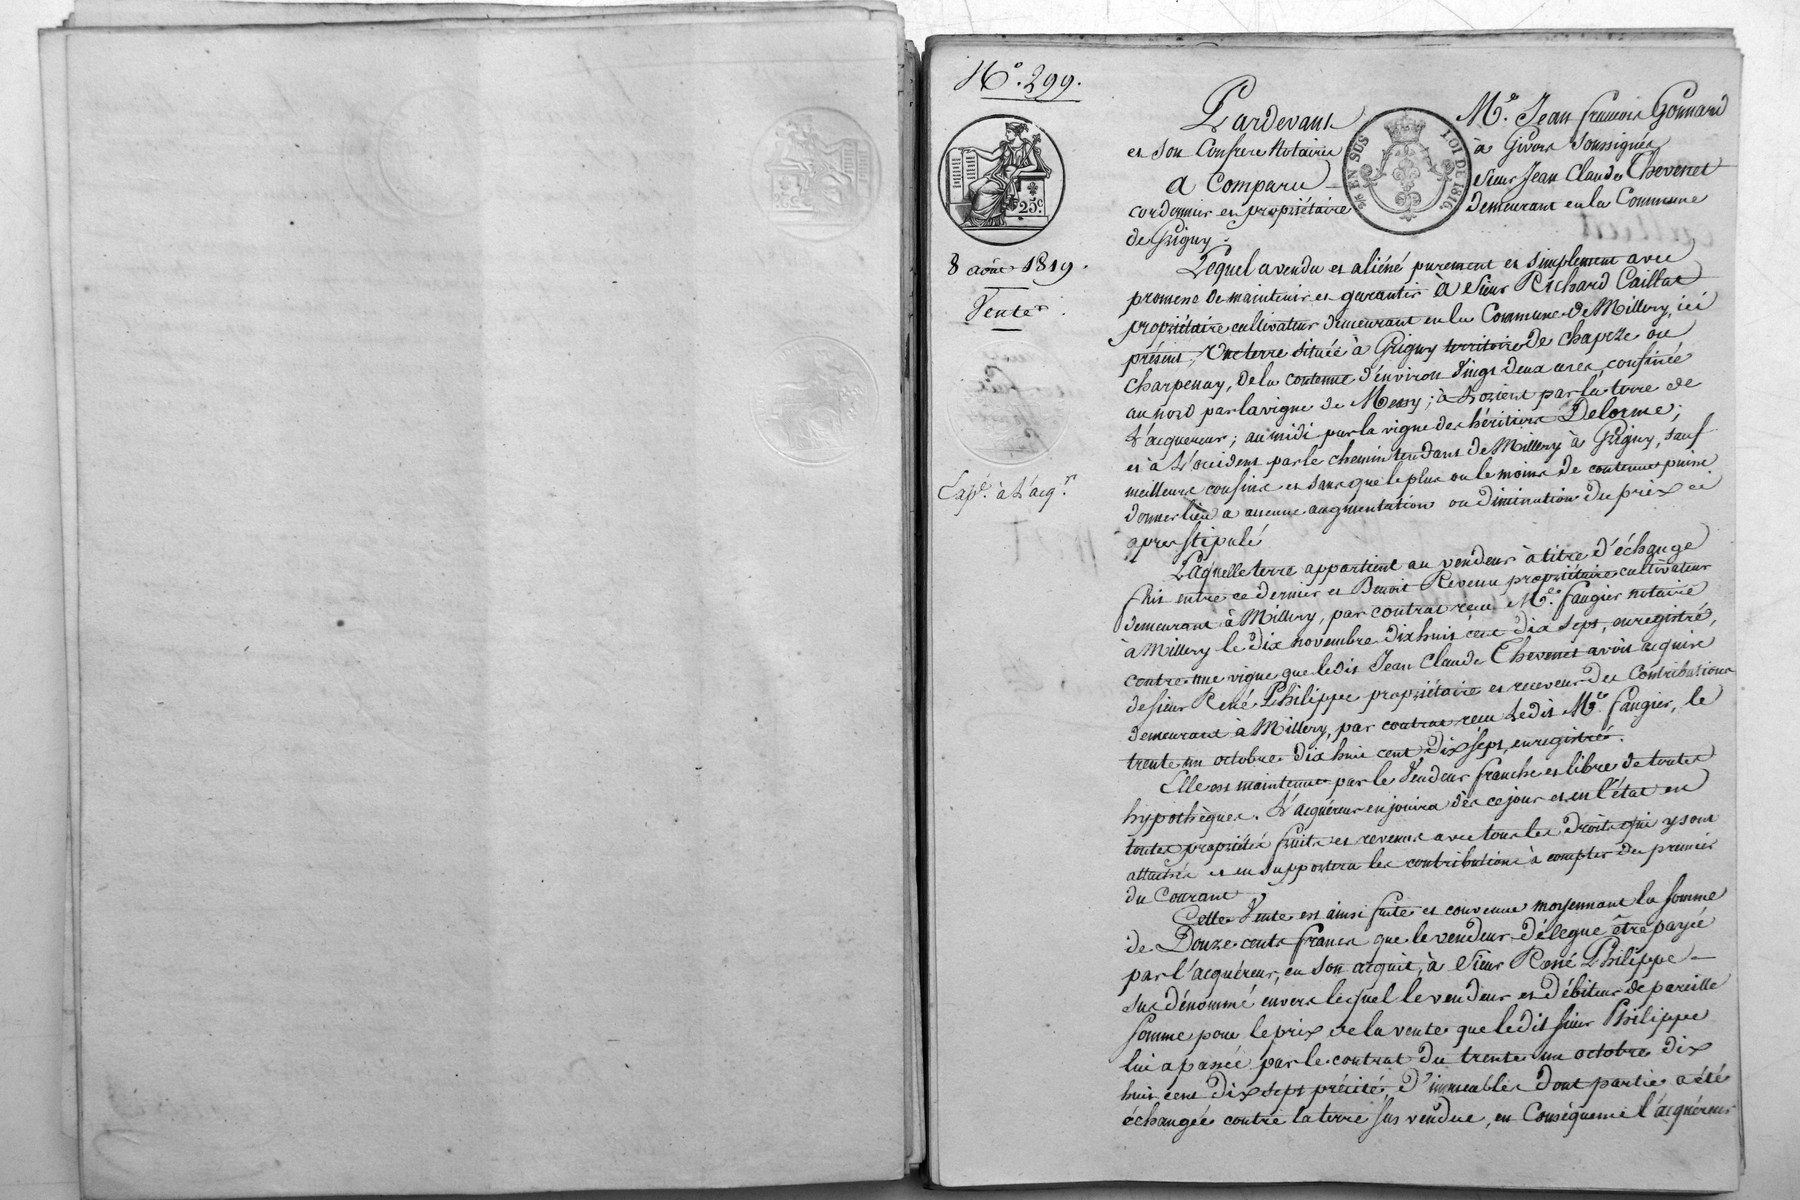 N.° 299.
25 c
8 août 1819.
Vente
Exp.on à l'acq.r
EN SUS LOI DE 1816
Pardevant M.e Jean françois Gonnard
et son Confrere Notaires à Givors soussignés,
A Comparu Sieur Jean Claude Thevenet
cordonnier et propriétaire demeurant en la Commune
de Grigny.
Lequel a vendu et aliéné purement et simplement avec
promesse de maintenir et garantir à Sieur Richard Caillat
propriétaire cultivateur demeurant en la Commune de Millery, ici
présent, Une terre située à Grigny territoire de chapeze ou
charpenay, de la contenue d'environ Vingt deux ares, confinée
au nord par la vigne de Messy; à L'orient par la terre de
L'acquereur; au midi par la vigne des héritiers Delorme;
et à L'occident par le chemin tendant de Millery à Grigny, sauf
meilleurs confins et sans que le plus ou le moins de contenue puisse
donner lieu a aucune augmentation ou diminution du prix ci
apres stipulé
Laquelle terre appartient au vendeur à titre d'échange
fait entre ce dernier et Benoit Revenu propriétaire cultivateur
demeurant à Millery, par contrat reçu M.e faugier notaire
à Millery le dix novembre dix huit cent dix sept, enregistré,
contre une vigne que ledit Jean Claude Thevenet avoit acquise
de sieur René Philippe propriétaire et receveur des Contributions
demeurant à Millery, par contrat reçu Ledit M.e faugier, le
trente un octobre dix huit cent dix sept, enregistré.
Elle est maintenue par le Vendeur franche et libre de toutes
hypothèques. L'acquéreur en jouira dès ce jour et en l'état en
toutes propriétés fruits et revenus avec tous les droits qui y sont
attachés et en supportera les contributions à compter du premier
du Courant.
Cette Vente est ainsi faite et convenue moyennant la somme
de Douze cents francs que le vendeur délegue être payée
par l'acquéreur, en son acquit, à Sieur René Philippe
sus dénommé envers lequel le vendeur est débiteur de pareille
somme pour le prix de la vente que ledit sieur Philippe
lui a passée par le contrat du trente un octobre dix
huit cent dix sept précité, d'immeubles dont partie a été
échangée contre la terre sus vendue, en Conséquence l'acquéreur